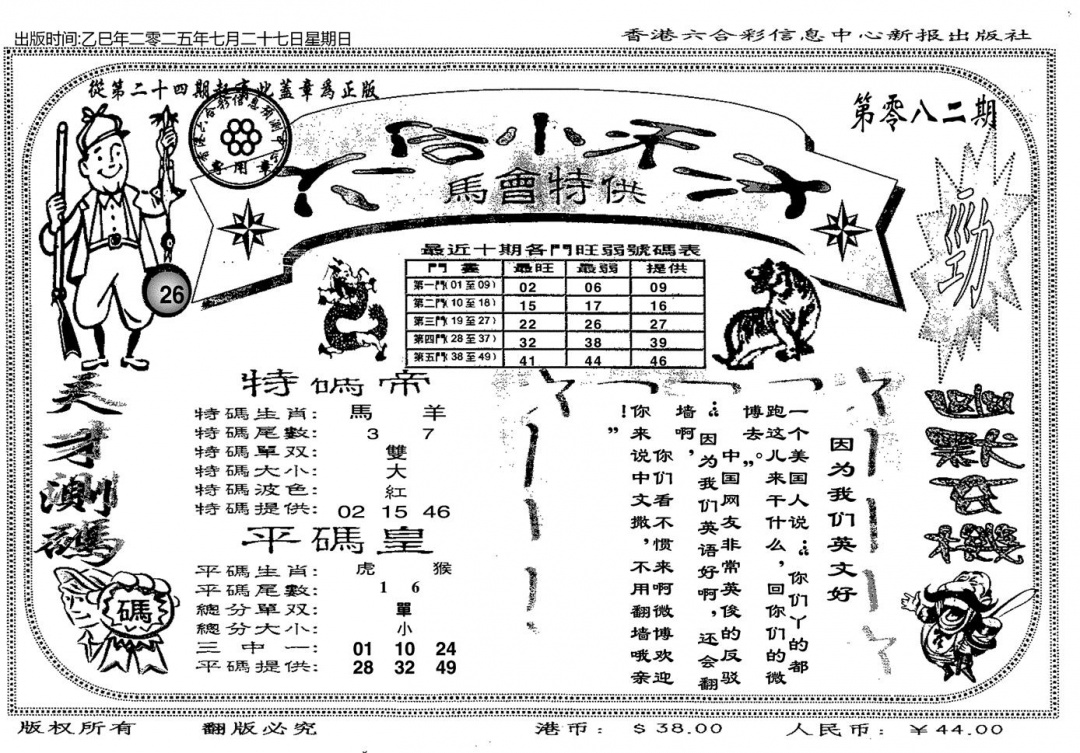 出版时间:乙巳年二零二五年七月二十七日星期日
香港六合彩信息中心新报出版社
從第二十四期起有此蓋章爲正版
第零八二期
專用章
馬會特供
勁
26
最近十期各門旺弱號碼表
門畫 最旺 最弱 提供
第一門(01至09) 02 06 09
第二門(10至18) 15 17 16
第三門(19至27) 22 26 27
第四門(28至37) 32 38 39
第五門(38至49) 41 44 46
天才測碼
碼
特碼帝
特碼生肖: 馬 羊
特碼尾數: 3 7
特碼單双: 雙
特碼大小: 大
特碼波色: 紅
特碼提供: 02 15 46
平碼皇
平碼生肖: 虎 猴
平碼尾數: 1 6
總分單双: 單
總分大小: 小
三中一: 01 10 24
平碼提供: 28 32 49
因为我们英文好
一个美国人说:“你们丫的都
跑这儿来干什么,回你们的微
博去。”
中国网友非常英俊的反驳
:“因为我们英语好啊,还会翻
墙啊,
你们看不惯来啊微博欢迎
你来说中文撒,不用翻墙哦亲
!”
版权所有
翻版必究
港币: $38.00
人民币: ¥44.00